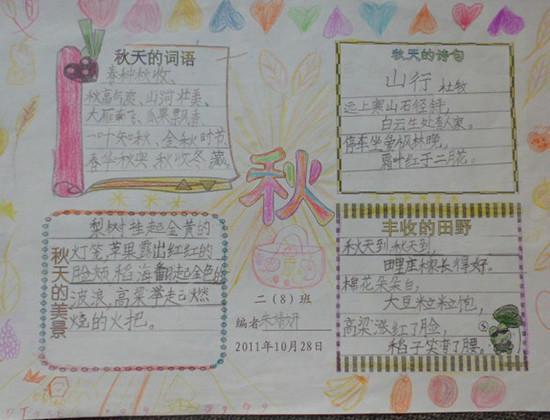 秋天的词语
春种秋收、
秋高气爽、山河壮美、
大雁南飞、瓜果飘香
一叶知秋、金秋时节
春华秋实、秋收冬藏。
秋天的诗句
山行 杜牧
远上寒山石径斜,
白云生处有人家。
停车坐爱枫林晚,
霜叶红于二月花。
秋
秋天的美景
梨树挂起金黄的
灯笼,苹果露出红红的
脸颊,稻海翻起金色的
波浪,高粱举起燃
烧的火把。
二(8)班
编者 朱
2011年10月28日
丰收的田野
秋天到,秋天到,
田里庄稼长得好。
棉花朵朵白,
大豆粒粒饱,
高粱涨红了脸,
稻子笑弯了腰。